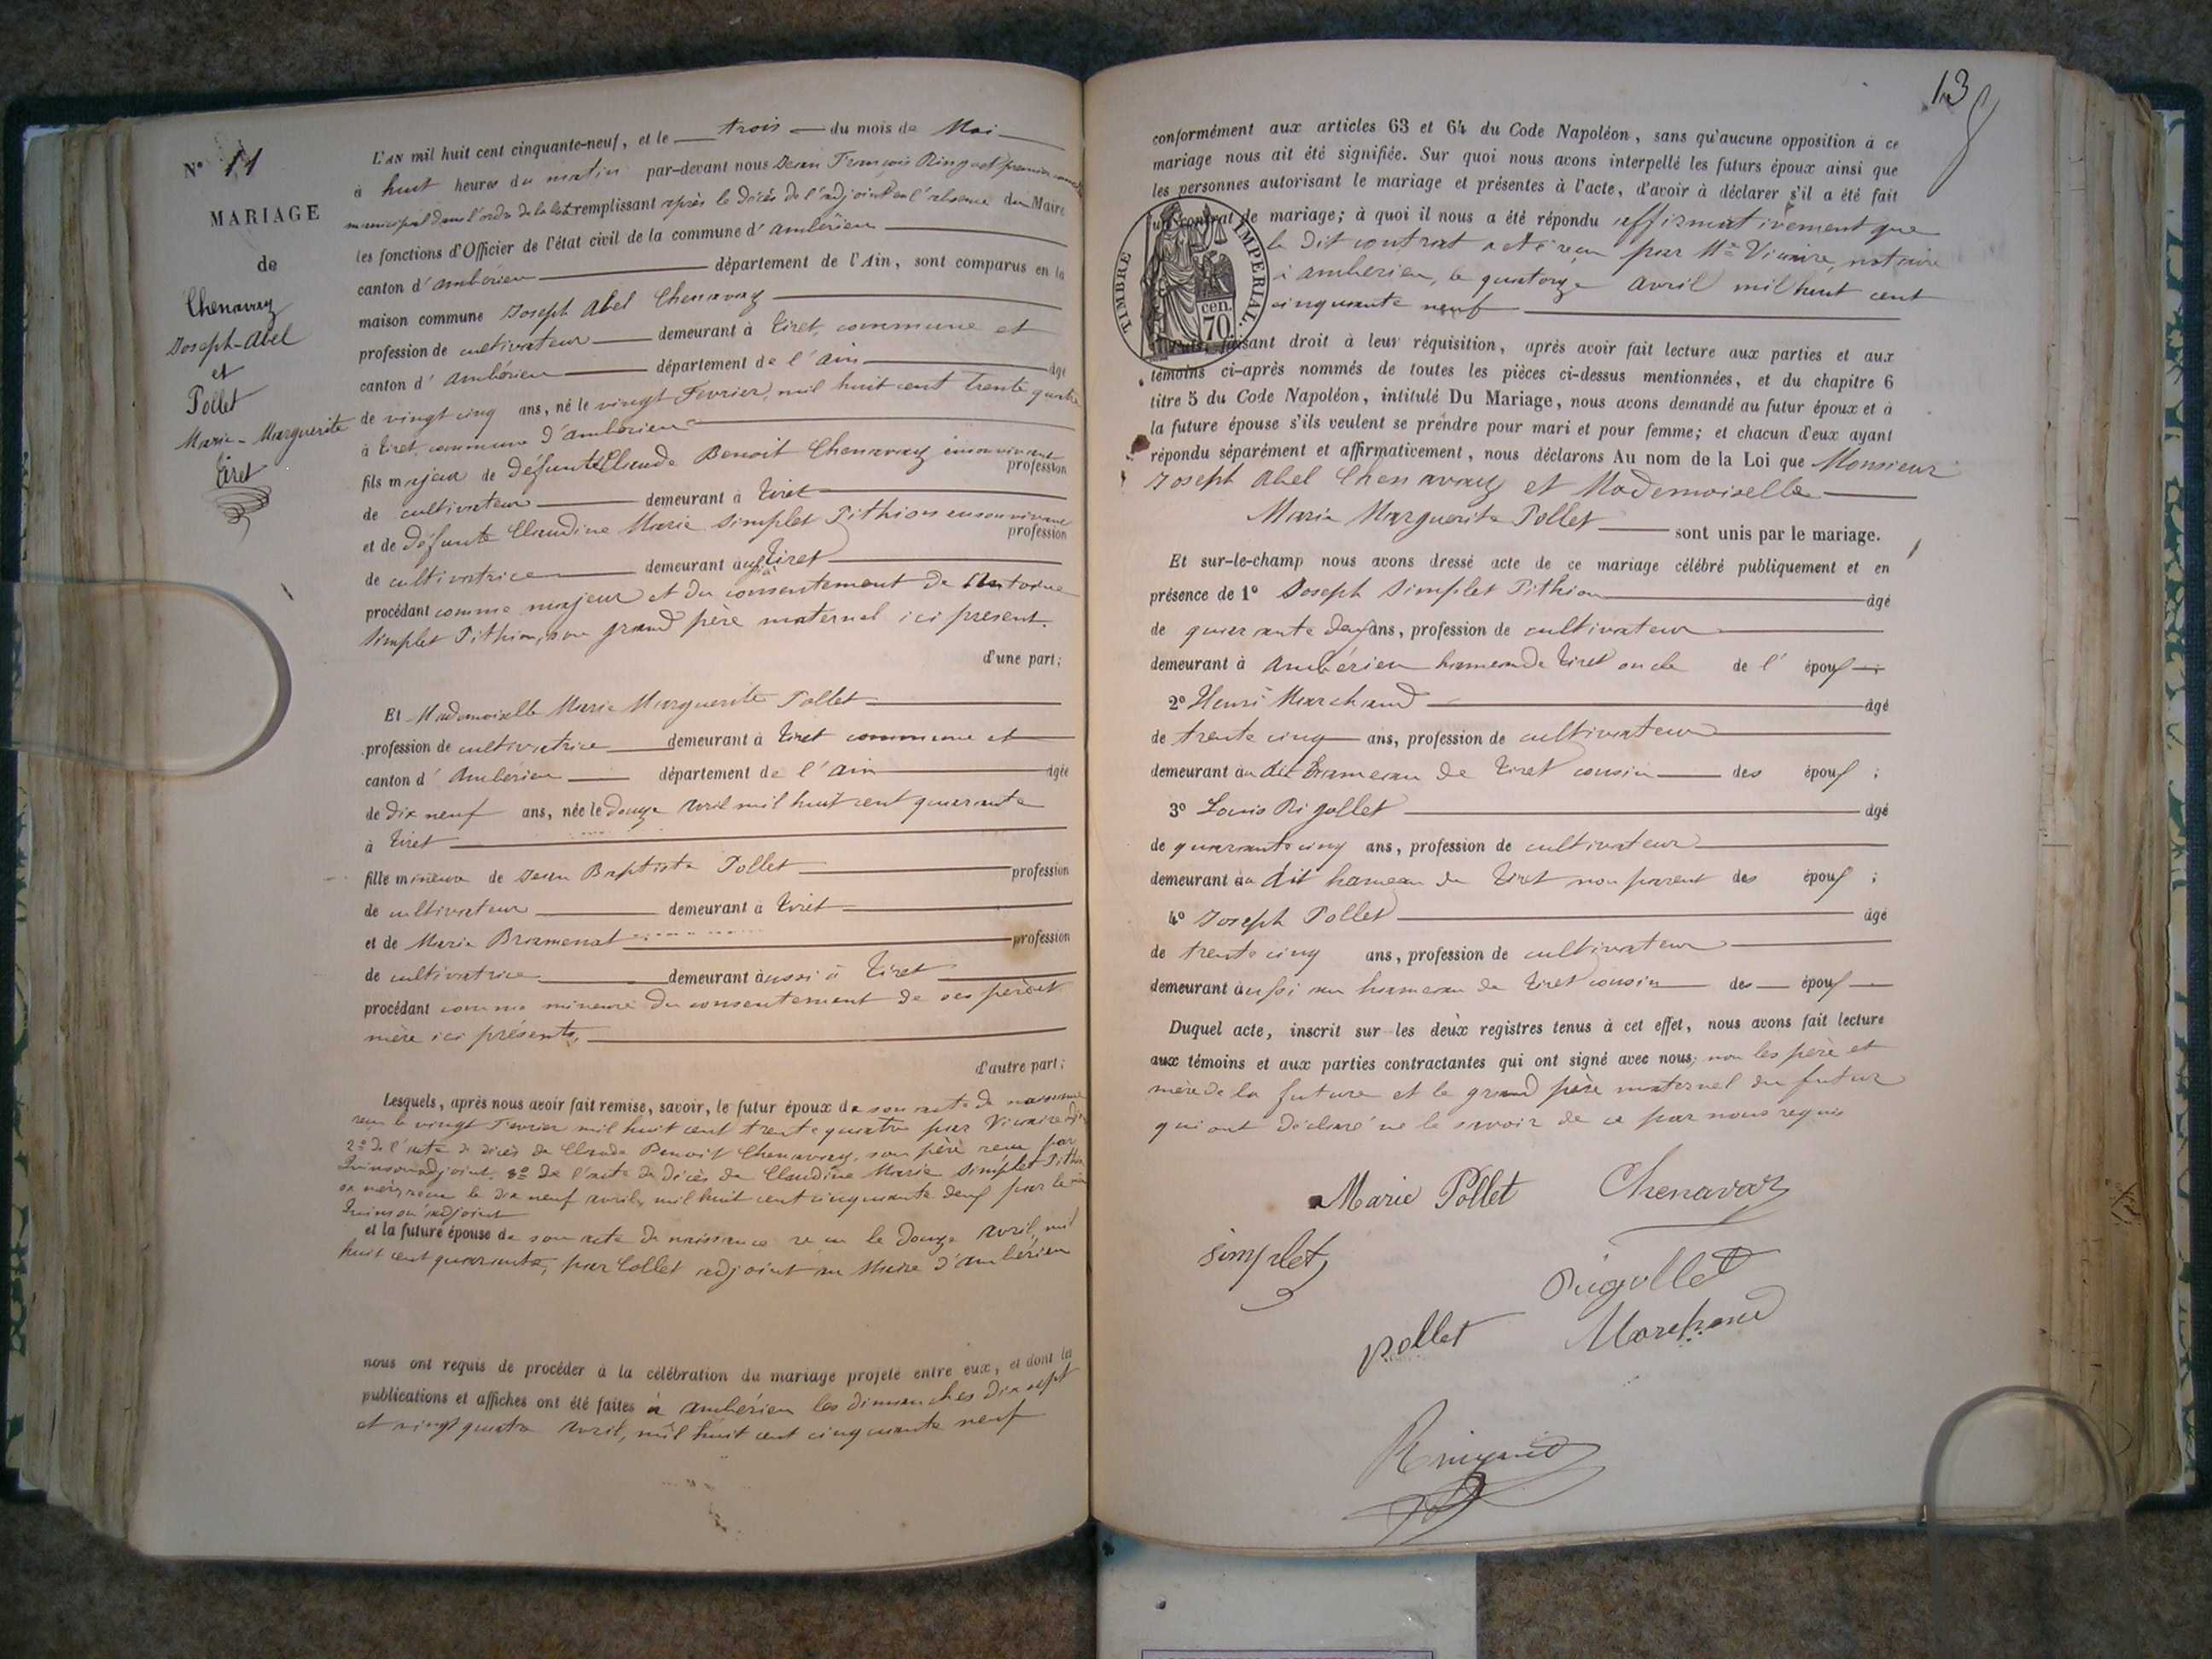 N° 11
MARIAGE
de
Chenavaz
Joseph-Abel
et
Pollet
Marie-Marguerite
Tiret
L'AN mil huit cent cinquante-neuf, et le trois du mois de Mai
à huit heures du matin par-devant nous Jean François premier
municipal dans l'ordre de la liste remplissant après le décès de l'adjoint en l'absence du Maire
les fonctions d'Officier de l'état civil de la commune d'ambérieu
canton d'ambérieu département de l'Ain, sont comparus en la
maison commune Joseph Abel Chenavaz
profession de cultivateur demeurant à Tiret, commune et
canton d'Ambérieu département de l'ain âgé
de vingt cinq ans, né le vingt Fevrier, mil huit cent trente quatre
à Tiret, commune d'ambérieu
fils majeur de défunt Claude Benoit Chenavaz en son vivant profession
de cultivateur demeurant à Tiret
et de défunte Claudine Marie Simplet Pithion en son vivant profession
de cultivatrice demeurant à Tiret
procédant comme majeur et du consentement de Antoine
Simplet Pithion, son grand père maternel ici présent.
d'une part;
Et Mademoiselle Marie Marguerite Pollet
profession de cultivatrice demeurant à Tiret commune et
canton d'Ambérieu département de l'ain âgée
de dix neuf ans, née le douze avril mil huit cent quarante
à Tiret
fille mineure de Jean Baptiste Pollet profession
de cultivateur demeurant à Tiret
et de Marie Bramenat profession
de cultivatrice demeurant aussi à Tiret
procédant comme mineure du consentement de ses père et
mère ici présents,
d'autre part;
Lesquels, après nous avoir fait remise, savoir, le futur époux de son acte de naissance
reçu le vingt Fevrier mil huit cent trente quatre par Vicaire
2° de l'acte de décès de Claude Benoit Chenavaz, son père reçu par
adjoint. 3° de l'acte de décès de Claudine Marie Simplet Pithion
sa mère, reçu le dix neuf avril, mil huit cent cinquante deux par le
adjoint
et la future épouse de son acte de naissance reçu le douze avril, mil
huit cent quarante, par Collet adjoint au Maire d'ambérieu
nous ont requis de procéder à la célébration du mariage projeté entre eux, et dont la
publications et affiches ont été faites à ambérieu les dimanches dix sept
et vingt quatre avril, mil huit cent cinquante neuf
13
conformément aux articles 63 et 64 du Code Napoléon, sans qu'aucune opposition à ce
mariage nous ait été signifiée. Sur quoi nous avons interpellé les futurs époux ainsi que
les personnes autorisant le mariage et présentes à l'acte, d'avoir à déclarer s'il a été fait
un contrat de mariage; à quoi il nous a été répondu affirmativement que
le dit contrat a été reçu par Me Vicaire, notaire
à ambérieu, le quatorze avril mil huit cent
cinquante neuf
TIMBRE IMPERIAL.
cen.
70
faisant droit à leur réquisition, après avoir fait lecture aux parties et aux
témoins ci-après nommés de toutes les pièces ci-dessus mentionnées, et du chapitre 6
titre 5 du Code Napoléon, intitulé Du Mariage, nous avons demandé au futur époux et à
la future épouse s'ils veulent se prendre pour mari et pour femme; et chacun d'eux ayant
répondu séparément et affirmativement, nous déclarons Au nom de la Loi que Monsieur
Joseph Abel Chenavaz et Mademoiselle
Marie Marguerite Pollet sont unis par le mariage.
Et sur-le-champ nous avons dressé acte de ce mariage célébré publiquement et en
présence de 1° Joseph Simplet Pithion âgé
de quarante deux ans, profession de cultivateur
demeurant à Ambérieu hameau de Tiret oncle de l' époux
2° Henri Marchand âgé
de trente cinq ans, profession de cultivateur
demeurant au dit hameau de Tiret cousin des époux;
3° Louis Rigollet âgé
de quarante cinq ans, profession de cultivateur
demeurant au dit hameau de Tiret non parent des époux;
4° Joseph Pollet âgé
de trente cinq ans, profession de cultivateur
demeurant aussi au hameau de Tiret cousin des époux
Duquel acte, inscrit sur les deux registres tenus à cet effet, nous avons fait lecture
aux témoins et aux parties contractantes qui ont signé avec nous, non les père et
mère de la future et le grand père maternel du futur
qui ont déclaré ne le savoir de ce par nous requis
Marie Pollet Chenavaz
Simplet
Rigollet
pollet Marchand